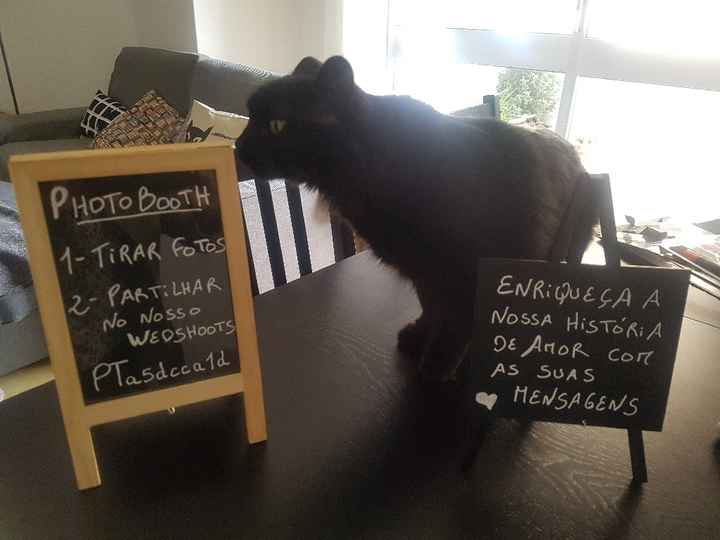 PHOTO BOOTH
1- TIRAR FOTOS
2- PARTILHAR
NO NOSSO
WEDSHOOTS
PTa5dcca1d
ENRIQUEÇA A
NOSSA HISTÓRIA
DE AMOR COM
AS SUAS
MENSAGENS